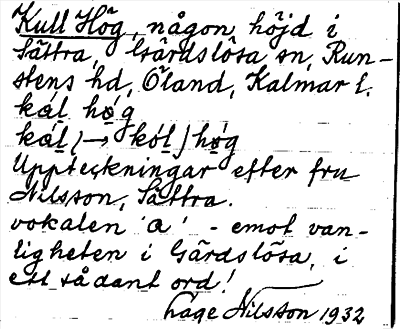 Kull Hög, någon höjd i
Sättra, Gärdslösa sn, Run-
stens hd, Öland, Kalmar l.
kal hög
kal (→ kol) hög
Uppteckningar efter fru
Nilsson, Sättra.
vokalen 'a' - emot van-
ligheten i Gärdslösa, i
ett sådant ord!
Låge Nilsson 1932